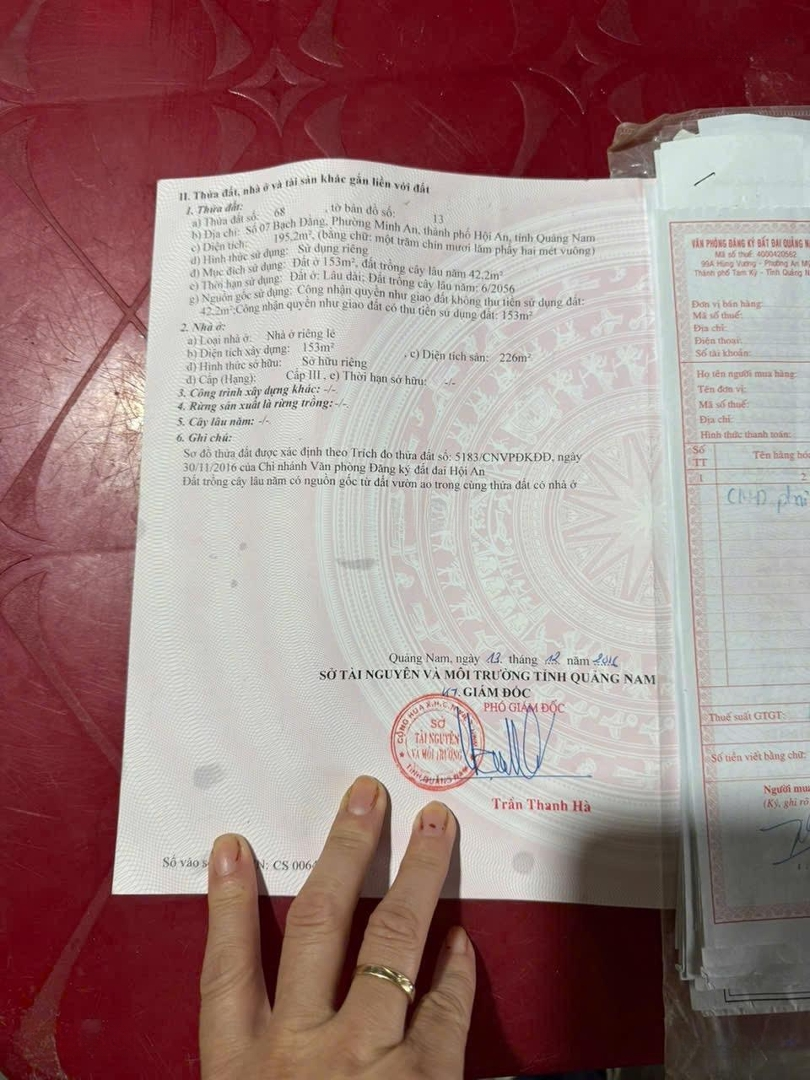 II. Thửa đất, nhà ở và tài sản khác gắn liền với đất
1. Thửa đất:
a) Thửa đất số: 68 , tờ bản đồ số: 13
b) Địa chỉ: Số 07 Bạch Đằng, Phường Minh An, thành phố Hội An, tỉnh Quảng Nam
c) Diện tích: 195.2m², (bằng chữ: một trăm chín mươi lăm phẩy hai mét vuông)
d) Hình thức sử dụng: Sử dụng riêng
đ) Mục đích sử dụng: Đất ở 153m², đất trồng cây lâu năm 42.2m²
e) Thời hạn sử dụng: Đất ở: Lâu dài; Đất trồng cây lâu năm: 6/2056
g) Nguồn gốc sử dụng: Công nhận quyền như giao đất không thu tiền sử dụng đất:
42.2m²;Công nhận quyền như giao đất có thu tiền sử dụng đất: 153m²
2. Nhà ở:
a) Loại nhà ở: Nhà ở riêng lẻ
b) Diện tích xây dựng: 153m² , c) Diện tích sàn: 226m²
d) Hình thức sở hữu: Sở hữu riêng
đ) Cấp (Hạng): Cấp III , e) Thời hạn sở hữu: -/-
3. Công trình xây dựng khác: -/-
4. Rừng sản xuất là rừng trồng: -/-
5. Cây lâu năm: -/-
6. Ghi chú:
Sơ đồ thửa đất được xác định theo Trích đo thửa đất số: 5183/CNVPĐKĐĐ, ngày
30/11/2016 của Chi nhánh Văn phòng Đăng ký đất đai Hội An
Đất trồng cây lâu năm có nguồn gốc từ đất vườn ao trong cùng thửa đất có nhà ở
Quảng Nam, ngày 13 tháng 12 năm 2016
SỞ TÀI NGUYÊN VÀ MÔI TRƯỜNG TỈNH QUẢNG NAM
KT. GIÁM ĐỐC
PHÓ GIÁM ĐỐC
SỞ
TÀI NGUYÊN
VÀ MÔI TRƯỜNG
TỈNH QUẢNG NAM
Trần Thanh Hà
Số vào s N: CS 006
VĂN PHÒNG ĐĂNG KÝ ĐẤT ĐAI QUẢNG NA
Mã số thuế: 4000420562
99A Hùng Vương - Phường An M
Thành phố Tam Kỳ - Tỉnh Quảng N
Đơn vị bán hàng:
Mã số thuế:
Địa chỉ:
Điện thoại:
Số tài khoản:
Họ tên người mua hàng:
Tên đơn vị:
Mã số thuế:
Địa chỉ:
Hình thức thanh toán:
Số TT Tên hàng hó
1 2
Thuế suất GTGT:
Số tiền viết bằng chữ:
Người mu
(Ký, ghi rõ